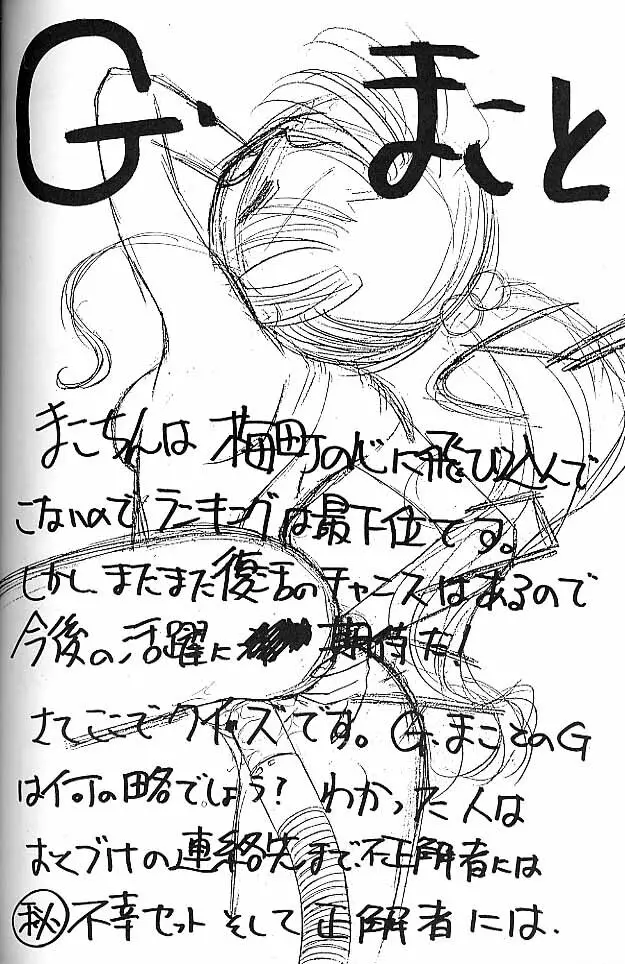 G.まこと
まこちんは梅町の心に飛び込んで
こないのでランキングは最下位です。
しかしまだまだ復活のチャンスはあるので
今後の活躍に期待だ!
さてここでクイズです。G.まことのG
は何の略でしょう?わかった人は
おくづけの連絡先まで不正解者には
秋不幸セットそして正解者には.